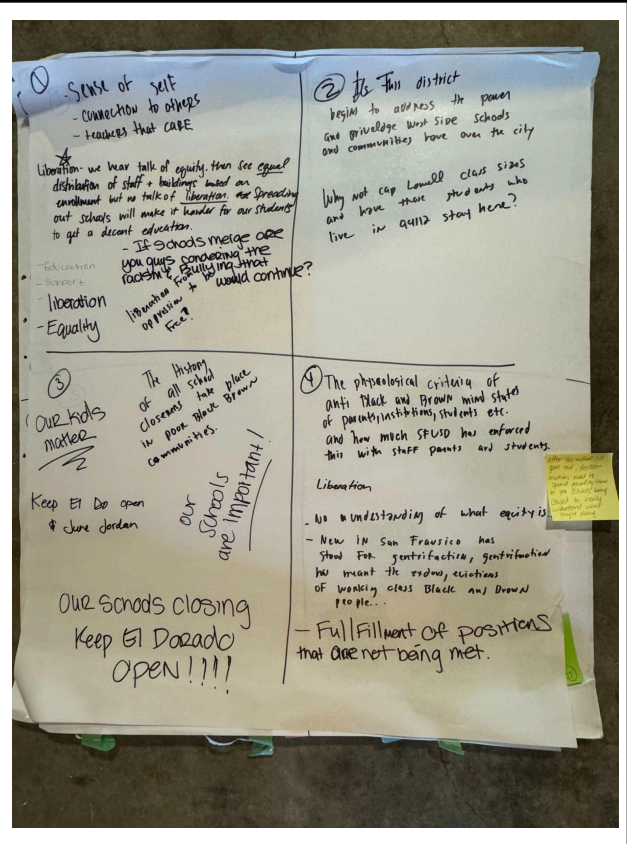 ①
- Sense of self
- connection to others
- teachers that CARE
Liberation - we hear talk of equity. then see equal
distribution of staff + buildings based on
enrollment but no talk of liberation. Spreading
out schools will make it harder for our students
to get a decent education.
- If schools merge are
you guys condering the
racism & Bullying that
would continue?
- Education
- Support
- liberation
- Equality
liberation from
oppression to be
free?
②
Is This district
begins to address the power
and priveledge West Side Schools
and communities have over the city
Why not cap Lowell class sizes
and have those students who
live in 94112 stay here?
③
OUR KIDS
matter
The History
of all school
closerens take place
in poor Black Brown
communities.
Keep El Do open
& June Jordan
our
schools
are important!
OUR Schools Closing
Keep El Dorado
OPEN!!!!
④
The physeological criteria of
anti Black and Brown mind states
of parents, institutions, students etc.
and how much SFUSD has enforced
this with staff parents and students.
Liberation
- No understanding of what equity is.
- New IN San Fransico has
stood For gentrifaction, gentrifaction
has meant the evictions
of working class Black and Brown
people...
- Full Fillment of positions
that are not being met.